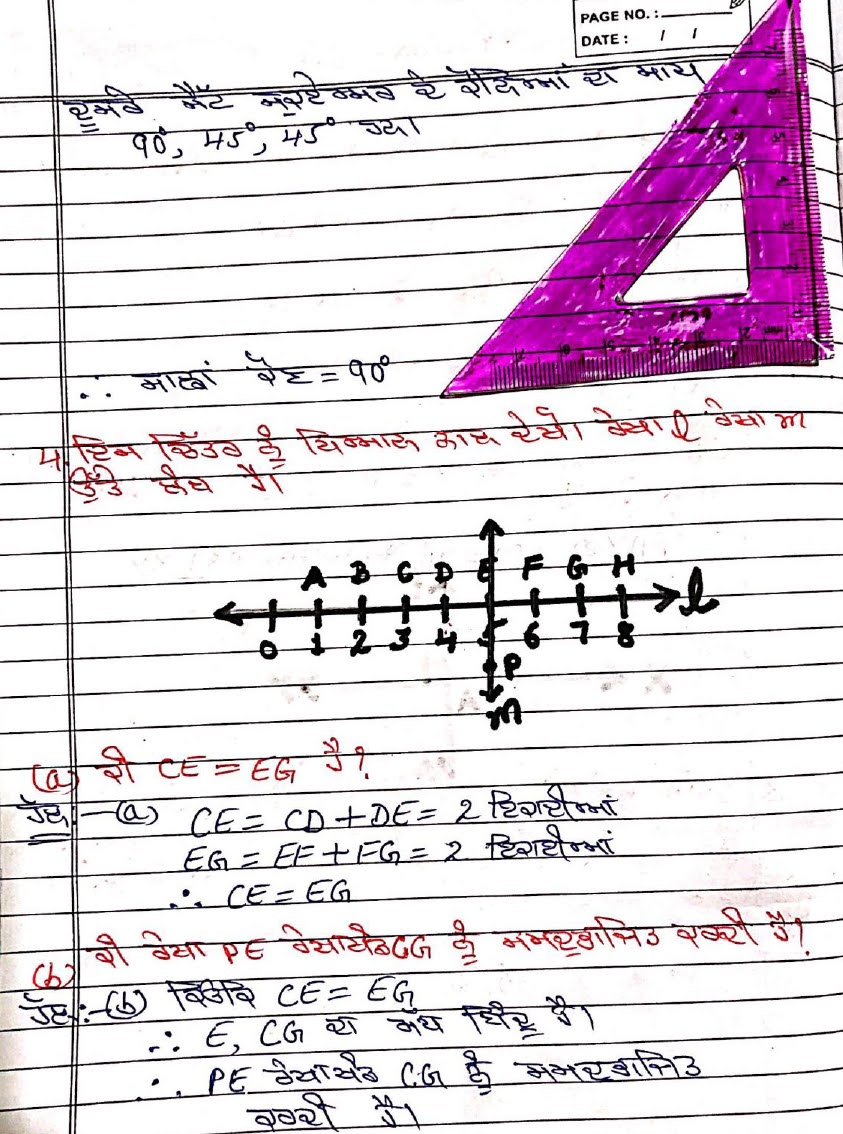 PAGE NO. :
DATE : / /
ਦੂਸਰੇ ਸੈੱਟ ਸੁਕੇਅਰ ਦੇ ਕੋਣਿਆਂ ਦਾ ਮਾਪ
90°, 45°, 45° ਹਨ।
∴ ਸਾਂਝਾ ਕੋਣ = 90°
4. ਇਸ ਚਿੱਤਰ ਨੂੰ ਧਿਆਨ ਨਾਲ ਦੇਖੋ। ਰੇਖਾ l ਰੇਖਾ m
ਉੱਤੇ ਲੰਬ ਹੈ।
A B C D E F G H
l
0 1 2 3 4 5 6 7 8
P
m
(a) ਕੀ CE = EG ਹੈ?
ਹੱਲ:-(a) CE = CD + DE = 2 ਇਕਾਈਆਂ
EG = EF + FG = 2 ਇਕਾਈਆਂ
∴ CE = EG
(b) ਕੀ ਰੇਖਾ PE ਰੇਖਾਖੰਡ CG ਨੂੰ ਸਮਦੁਭਾਜਿਤ ਕਰਦੀ ਹੈ?
ਹੱਲ:-(b) ਕਿਉਂਕਿ CE = EG
∴ E, CG ਦਾ ਮੱਧ ਬਿੰਦੂ ਹੈ।
∴ PE ਰੇਖਾਖੰਡ CG ਨੂੰ ਸਮਦੁਭਾਜਿਤ
ਕਰਦੀ ਹੈ।